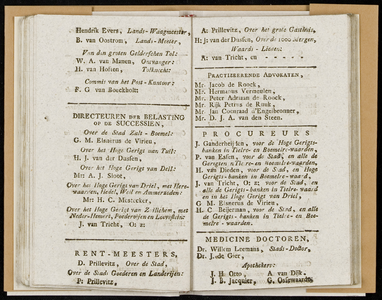 Hendrik Evers, Lands-Waagmeester,
B. van Oostrom, Lands-Meeter,
Van den grooten Gelderschen Tol:
W. A. van Manen, Ontvanger:
H. van Hoften,
Commis van het Post-Kantoor:
F. G van Boeckholtt
DIRECTEUREN DER BELASTING
OP DE SUCCESSIEN,
Over de Stad Zalt-Boemel:
G. M. Elsnerus de Virieu,
Over het Hoge Gerigt van Zuil:
H. J. van der Daassen,
Met A. J. Sloot,
Over het Hoge Gerigt van Driel, met Here-
waarden, Hedel, Well en Ammersoiden:
Met H. C. Meatecker,
Over het Hoge Gerigt van Zuilichem, met
Neder-Hemert, Poederoyen en Loevestein:
J. van Tricht, Or 2:
RENT-MEESTERS,
D. Prillevitz, Over de Stad,
Over de Stads Goederen en Landerijen:
P: Prillevitz,
A: Prillevitz, Over het grote Gasthuis,
H: J: van der Daassen, Over de 1000 Mergen,
Waards-Lienen:
A: van Tricht, en - - - - -
PRACTISERENDE ADVOCATEN,
Mr. Jacob de Roock,
Mr. Hermanus Vermeulen,
Mr. Peter Adriaan de Roock,
Mr. Rijk Petrus de Rouk,
Mr. Jan Coenraad d'Engelbronner,
Mr. D. J. A. van den Steen.
PROCUREURS
J. Ganderheijden, voor de Hoge Gerigts-
banken in Tieler- en Boemelre-waarden,
P. van Eslen, voor de Stad, en alle de
Gerigten in Tieler- en Boemelre-waarden,
H. van Dieden, voor de Stad, en Hoge
Gerigts-banken in Boemelre-waard,
J. van Tricht, Or 2; voor de Stad, en
alle de Gerigts-banken in Tieler-waard
en in het Hoge Gerigt van Driel,
G. M. Elsnerus de Virieu,
H. C. Beijerman, voor de Stad, en alle
de Gerigts-banken in Tieler- en Boe-
melre-waarden.
MEDICINE DOCTOREN,
Dr. Willem Leemans, Stads-Doctor,
Dr. J. de Gier,
Apothekers:
J. H. Otto, A. van Dijk,
J. B. Jacquier, G.